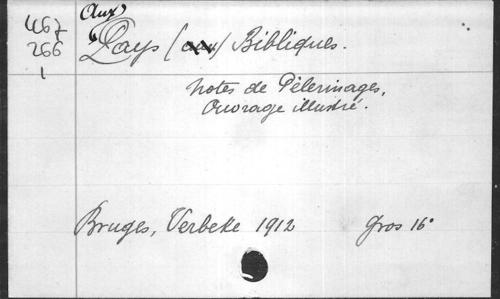 467
266
1
(Aux)
Pays (aux) Bibliques.
Notes de Pèlerinages,
Ouvrage illustré.
Bruges, Verbeke 1912 gros 16°